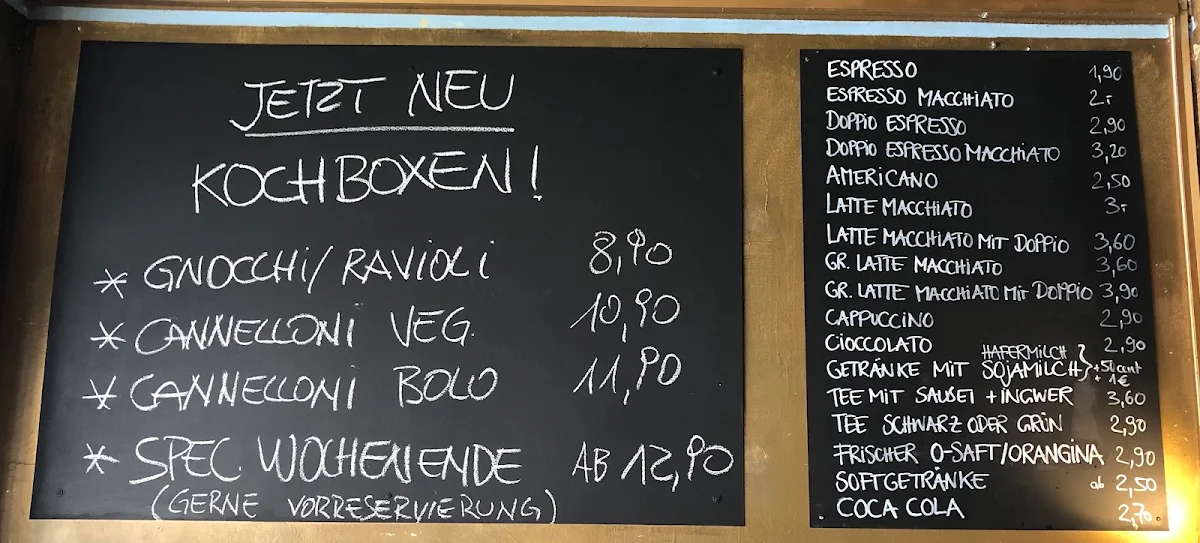 JETZT NEU
KOCHBOXEN!
* GNOCCHI/RAVIOLI 8,90
* CANNELLONI VEG. 10,90
* CANNELLONI BOLO 11,90
* SPEC. WOCHENENDE AB 12,90
(GERNE VORRESERVIERUNG)
ESPRESSO 1,90
ESPRESSO MACCHIATO 2.-
DOPPIO ESPRESSO 2,90
DOPPIO ESPRESSO MACCHIATO 3,20
AMERICANO 2,50
LATTE MACCHIATO 3.-
LATTE MACCHIATO MIT DOPPIO 3,60
GR. LATTE MACCHIATO 3,60
GR. LATTE MACCHIATO MIT DOPPIO 3,90
CAPPUCCINO 2,90
CIOCCOLATO 2,90
HAFERMILCH
GETRÄNKE MIT SOJAMILCH } +50cent
+ 1€
TEE MIT SALBEI + INGWER 3,60
TEE SCHWARZ ODER GRÜN 2,90
FRISCHER O-SAFT/ORANGINA 2,90
SOFTGETRÄNKE ab 2,50
COCA COLA 2,70